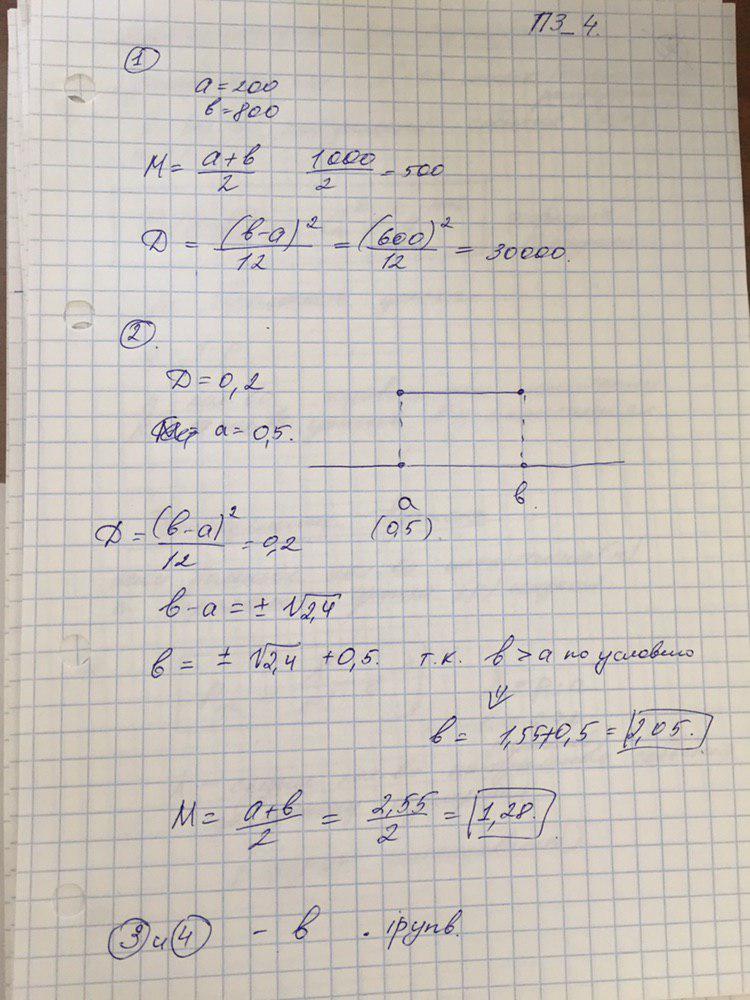 ПЗ_4.
1
a = 200
b = 800
M = (a+b)/2 1000/2 = 500
D = (b-a)²/12 = (600)²/12 = 30000.
2.
D = 0,2
a = 0,5.
a b
(0,5)
D = (b-a)²/12 = 0,2
b-a = ± √2,4
b = ± √2,4 + 0,5. т.к. b > a по условию
⇓
b = 1,55+0,5 = 2,05.
M = (a+b)/2 = 2,55/2 = 1,28.
3 и 4 - в .ipynb.